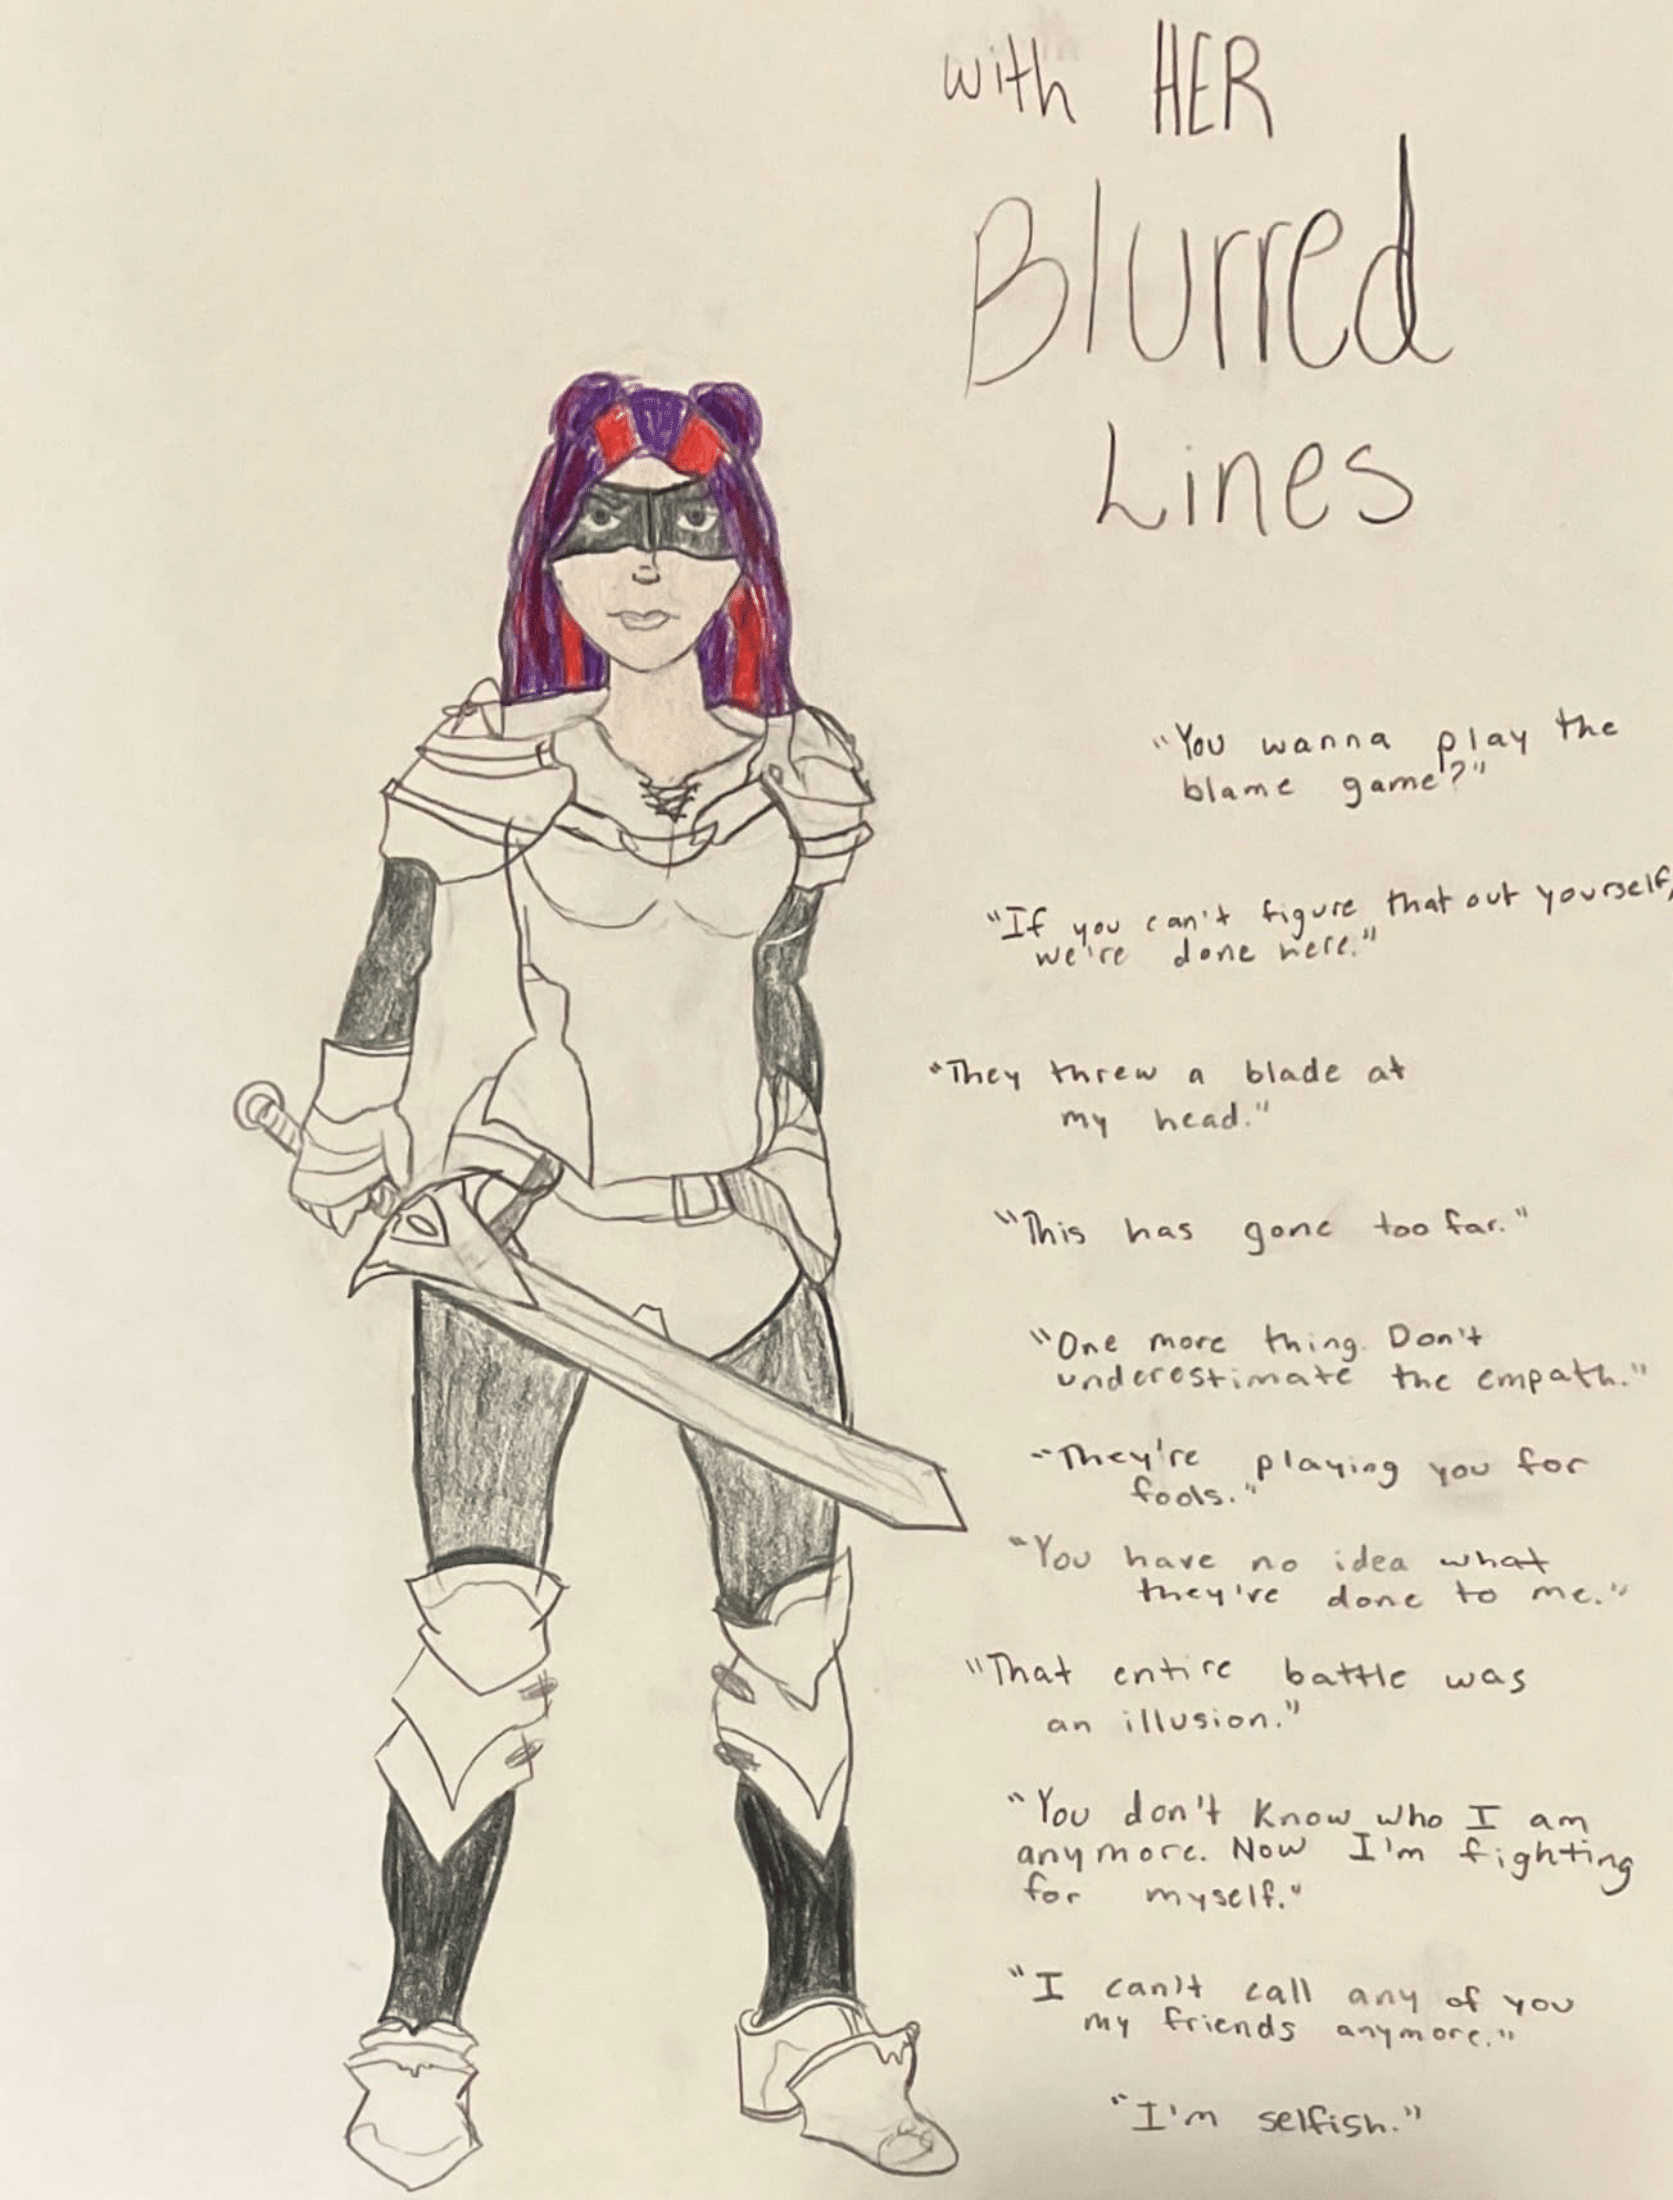 with HER
Blurred
Lines
"You wanna play the
blame game?"
"If you can't figure that out yourself,
we're done here."
"They threw a blade at
my head."
"This has gone too far."
"One more thing. Don't
underestimate the empath."
"They're playing you for
fools."
"You have no idea what
they've done to me."
"That entire battle was
an illusion."
"You don't know who I am
anymore. Now I'm fighting
for myself."
"I can't call any of you
my friends anymore."
"I'm selfish."